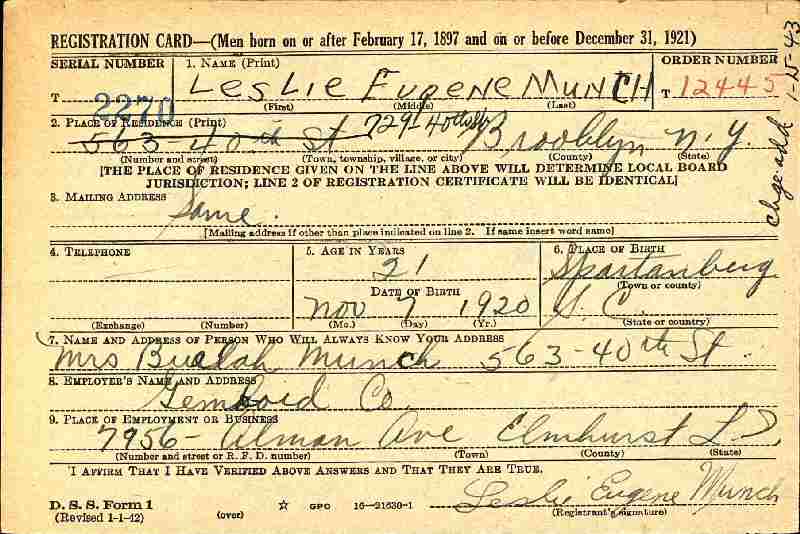 REGISTRATION CARD—(Men born on or after February 17, 1897 and on or before December 31, 1921)
SERIAL NUMBER
T 2270
1. NAME (Print)
LESLIE EUGENE MUNCH
(First) (Middle) (Last)
ORDER NUMBER
T 12445
2. PLACE OF RESIDENCE (Print)
563-40th St 729-40th St Brooklyn N.Y.
(Number and street) (Town, township, village, or city) (County) (State)
[THE PLACE OF RESIDENCE GIVEN ON THE LINE ABOVE WILL DETERMINE LOCAL BOARD
JURISDICTION; LINE 2 OF REGISTRATION CERTIFICATE WILL BE IDENTICAL]
3. MAILING ADDRESS
Same.
[Mailing address if other than place indicated on line 2. If same insert word same]
4. TELEPHONE
(Exchange) (Number)
5. AGE IN YEARS
21
DATE OF BIRTH
Nov 7 1920
(Mo.) (Day) (Yr.)
6. PLACE OF BIRTH
Spartanberg
(Town or county)
S.C.
(State or country)
7. NAME AND ADDRESS OF PERSON WHO WILL ALWAYS KNOW YOUR ADDRESS
Mrs Bualah Munch 563-40th St.
8. EMPLOYER'S NAME AND ADDRESS
Gemloid Co.
9. PLACE OF EMPLOYMENT OR BUSINESS
7956- Alman Ave Elmhurst L.I.
(Number and street or R. F. D. number) (Town) (County) (State)
I AFFIRM THAT I HAVE VERIFIED ABOVE ANSWERS AND THAT THEY ARE TRUE.
D. S. S. Form 1
(Revised 1-1-42) (over) ☆ GPO 16—21630-1
Leslie Eugene Munch
(Registrant's signature)
Chge. add 1-15-43